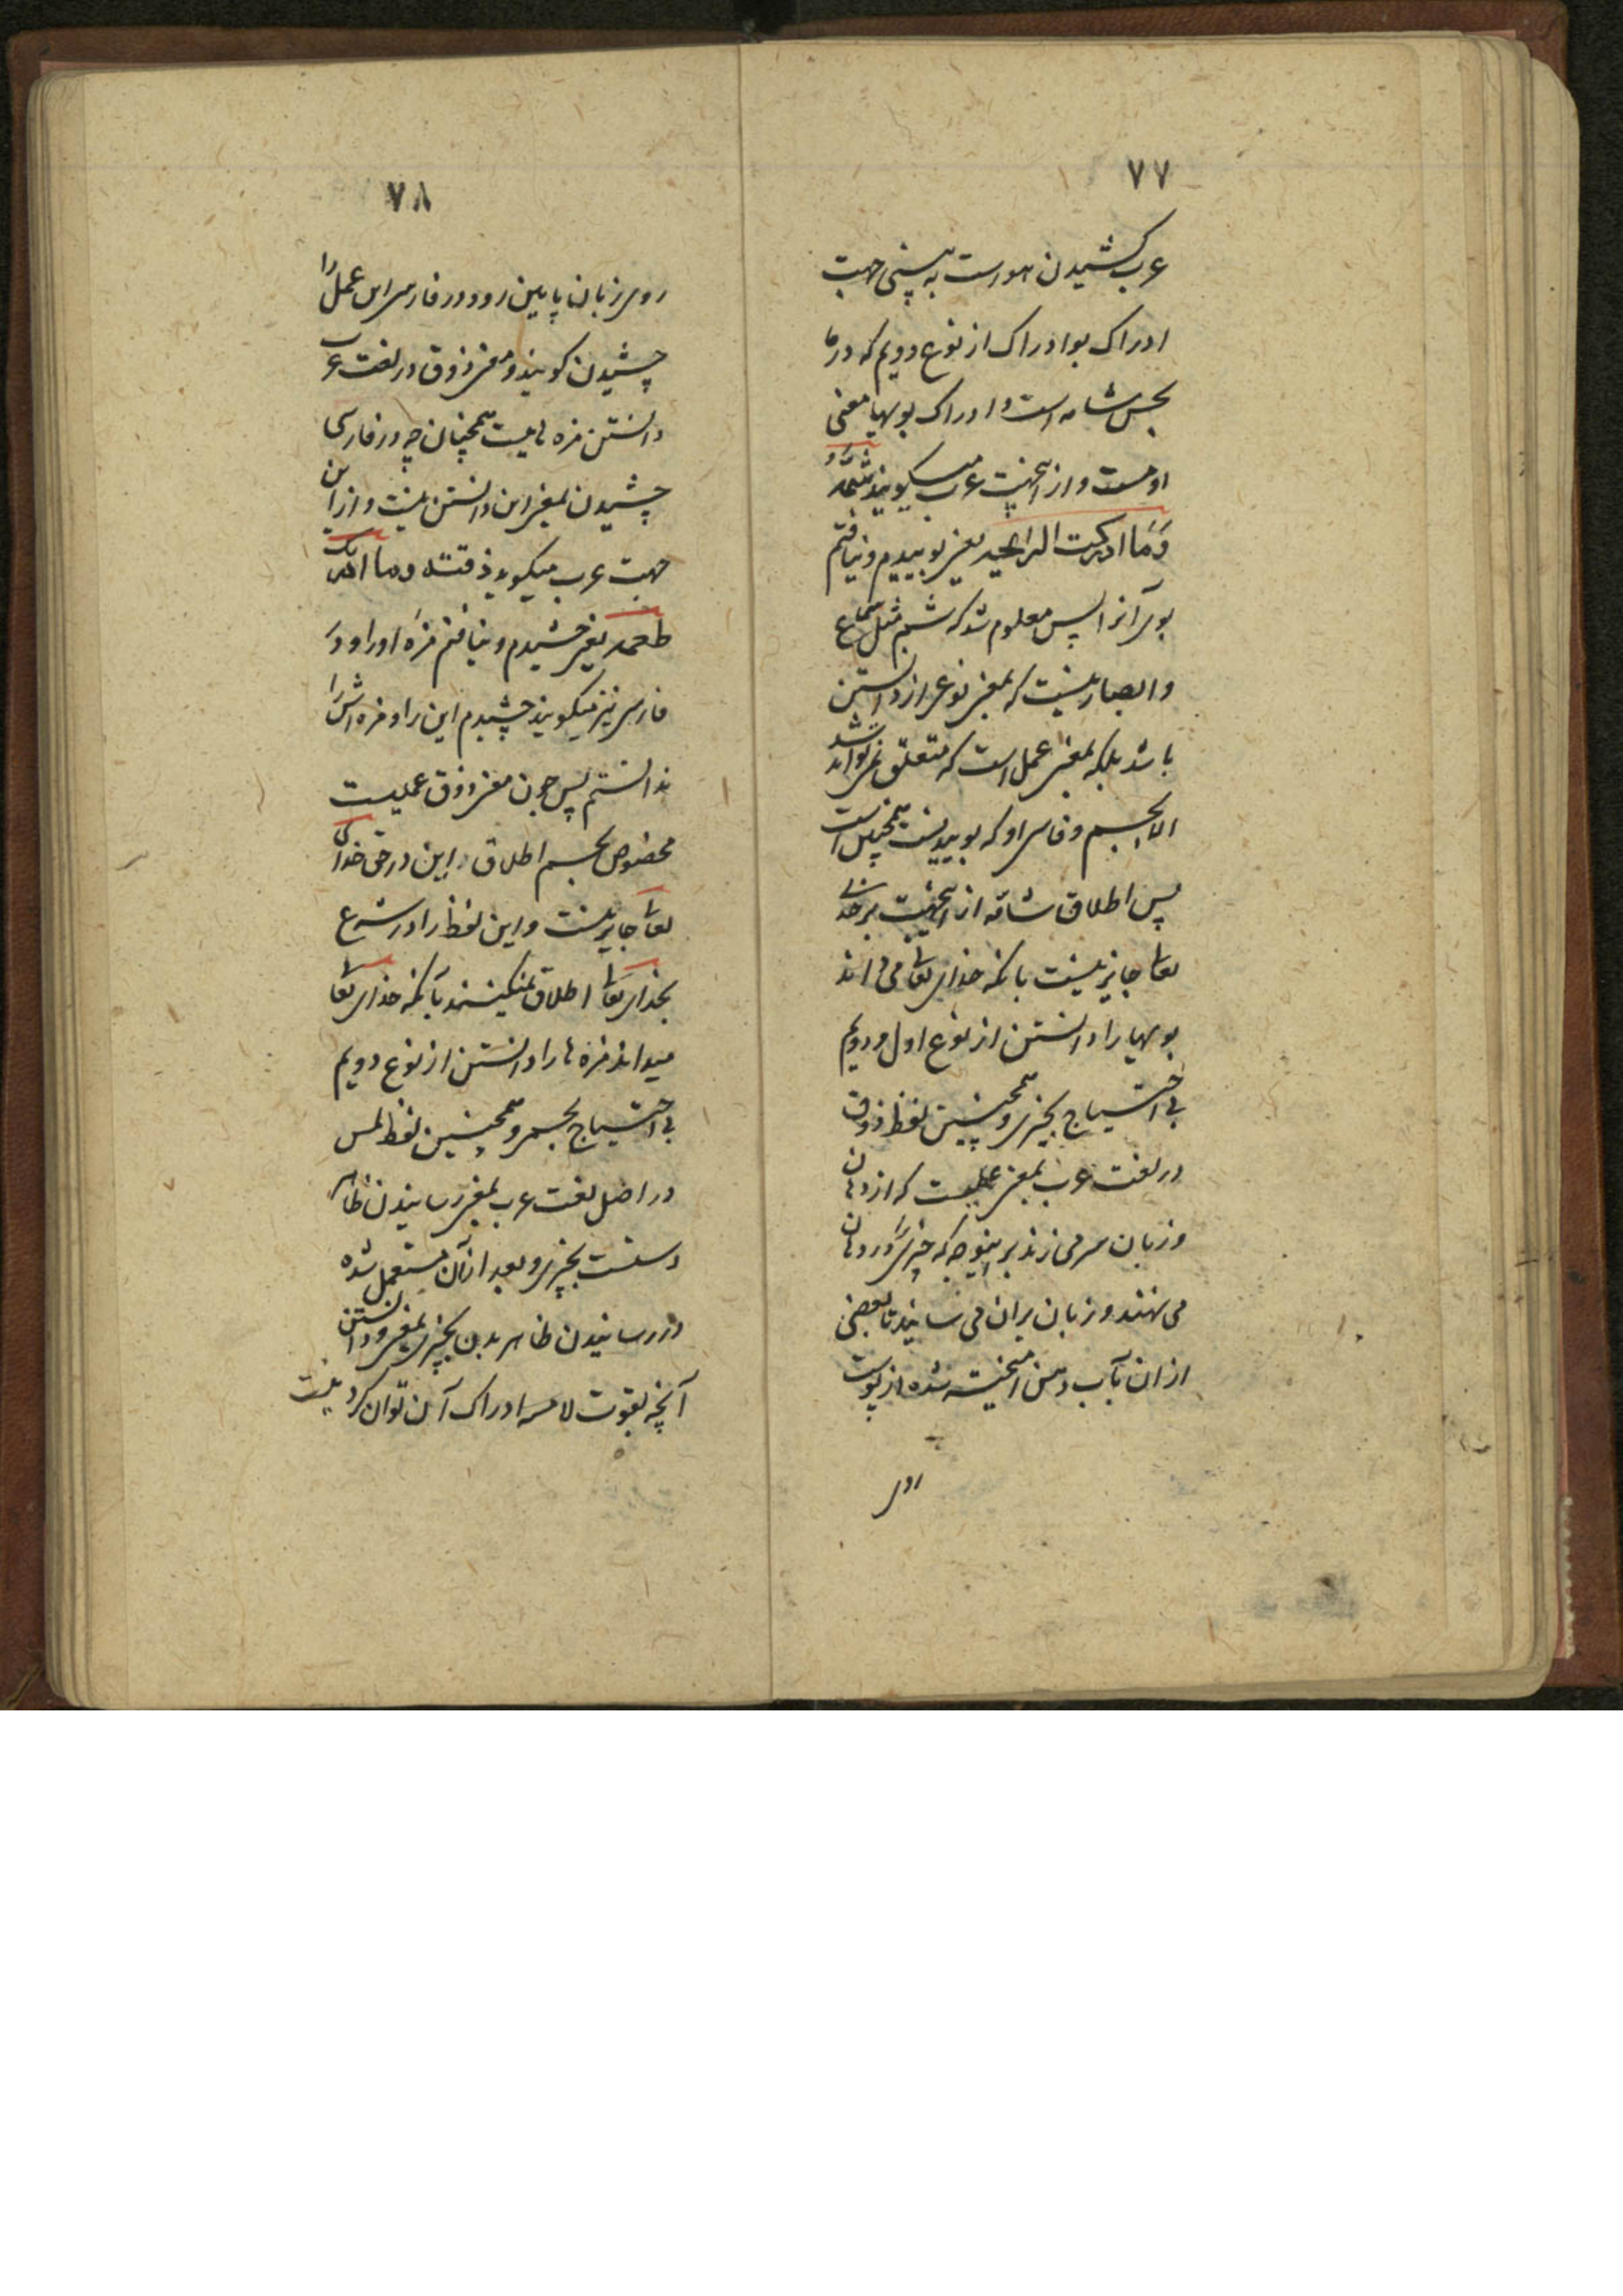 ۷۷
عرب کشیدن هوراست به بینی جهت
ادراک بو ادراک از نوع دویم که در ما
بحس شامه است و ادراک بویها معنی
او نیست و از اینجهت عرب میگویند شممته و
وَمَا ادرکت الرایحه یعنی بوییدم و نیافتم
بوی آنرا پس معلوم شد که شم مثل سماع
و ابصار نیست که بمعنی نوعی از دانستن
باشد بلکه بمعنی عمل است که متعلق نمیتواند شد
الا بجسم و فارسی او که بوییدنست همچنین است
پس اطلاق شامه از اینجهت بر خدای
تعالی جایز نیست بآنکه خدای تعالی می داند
بویها را دانستن از نوع اول و دویم
بی احتیاج بچیزی و همچنین لفظ ذوق
در لغت عرب بمعنی عملیست که از دهان
و زبان سر می زند براینوجه که چیزیرا در دهان
می نهند و زبان بران می رسانند تا بعضی
از ان بآب دهن امیخته شده از پوست
روی
۷۸
روی زبان پایین رود و در فارسی این عمل را
چشیدن گویند و معنی ذوق در لغت عرب
دانستن مزه نیست همچنان چه در فارسی
چشیدن بمعنی این دانستن نیست و از این
جهت عرب میگوید ذقته و ما ادرکت
طعمه یعنی چشیدم و نیافتم مزه او را و در
فارسی نیز میگویند چشیدم این را و مزه اش را
ندانستم پس چون معنی ذوق عملیست
مخصوص بجسم اطلاق این در حق خدای
تعالی جایز نیست و این لفظ را در شرع
بخدای تعالی اطلاق نمیکنند بآنکه خدای تعالی
میداند مزه ها را دانستن از نوع دویم
بی احتیاج بجسم و همچنین لفظ لمس
در اصل لغت عرب بمعنی رسانیدن ظاهر
دستست بچیزی و بعد از آن مستعمل شده
در رسانیدن ظاهر بدن بچیزی و بمعنی دانستن
آنچه بقوت لامسه ادراک آن توان کرد نیست